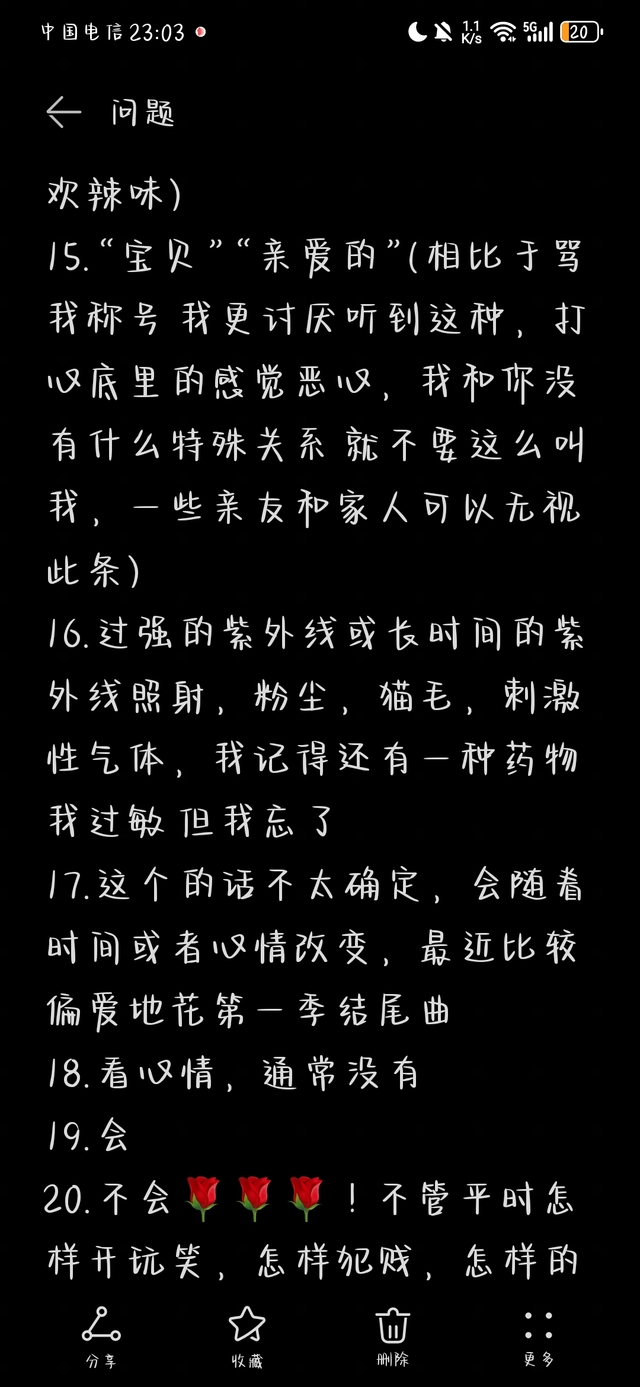 中国电信 23:03 1.1 K/s 5G 20
问题
欢辣味)
15.“宝贝”“亲爱的”(相比于骂
我称号 我更讨厌听到这种，打
心底里的感觉恶心，我和你没
有什么特殊关系 就不要这么叫
我，一些亲友和家人可以无视
此条)
16.过强的紫外线或长时间的紫
外线照射，粉尘，猫毛，刺激
性气体，我记得还有一种药物
我过敏 但我忘了
17.这个的话不太确定，会随着
时间或者心情改变，最近比较
偏爱地花第一季结尾曲
18.看心情，通常没有
19.会
20.不会🌹🌹🌹！不管平时怎
样开玩笑，怎样犯贱，怎样的
分享 收藏 删除 更多